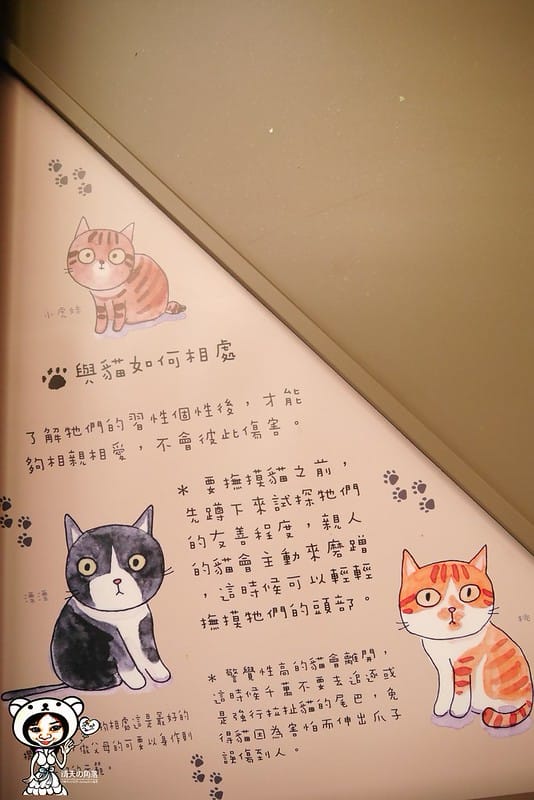 小虎妹
與貓如何相處
了解牠們的習性個性後，才能
夠相親相愛，不會彼此傷害。
* 要撫摸貓之前，
先蹲下來試探牠們
的友善程度，親人
的貓會主動來磨蹭
，這時候可以輕輕
撫摸牠們的頭部。
漂漂
* 警覺性高的貓會離開，
這時候千萬不要去追逐或
是強行拉扯貓的尾巴，免
得貓因為害怕而伸出爪子
誤傷到人。
物相處這是最好的
父母的可要以身作則
晴天の角落